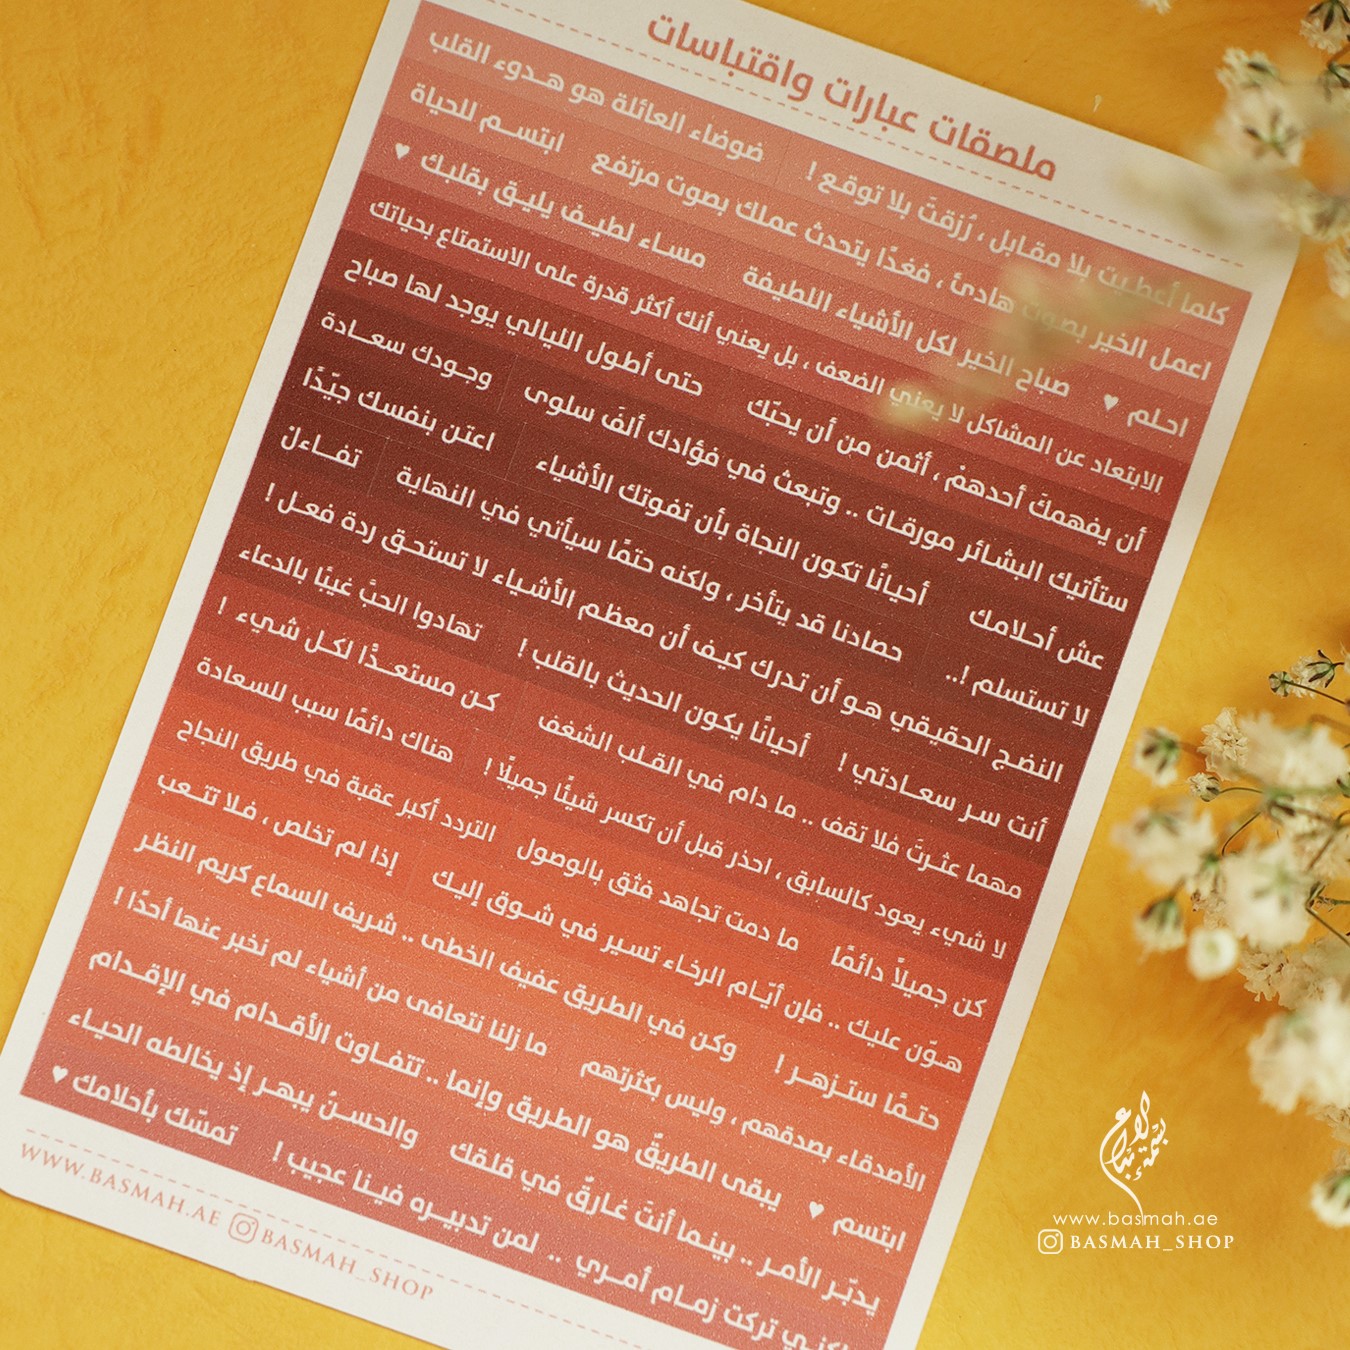 ملصقات عبارات واقتباسات
كلما أعطيت بلا مقابل ، رُزقتَ بلا توقع ! ضوضاء العائلة هو هدوء القلب
اعمل الخير بصوت هادئ ، فغدًا يتحدث عملك بصوت مرتفع ابتسم للحياة
احلم ♥ صباح الخير لكل الأشياء اللطيفة مساء لطيف يليق بقلبك ♥
الابتعاد عن المشاكل لا يعني الضعف ، بل يعني أنك أكثر قدرة على الاستمتاع بحياتك
أن يفهمكَ أحدهمْ ، أثمن من أن يحبّك حتى أطول الليالي يوجد لها صباح
ستأتيك البشائر مورقات .. وتبعث في فؤادك ألفَ سلوى وجودك سعادة
عش أحلامك أحيانًا تكون النجاة بأن تفوتك الأشياء اعتن بنفسك جيّدًا
لا تستسلم !.. حصادنا قد يتأخر ، ولكنه حتمًا سيأتي في النهاية تفاءلْ
النضج الحقيقي هو أن تدرك كيف أن معظم الأشياء لا تستحق ردة فعل !
أنت سر سعادتي ! أحيانًا يكون الحديث بالقلب ! تهادوا الحبَّ غيبًا بالدعاء
مهما عثرتَ فلا تقف .. ما دام في القلب الشغف كن مستعدًّا لكل شيء !
لا شيء يعود كالسابق ، احذر قبل أن تكسر شيئًا جميلًا ! هناك دائمًا سبب للسعادة
كن جميلاً دائمًا ما دمت تجاهد فثق بالوصول التردد أكبر عقبة في طريق النجاح
هوّن عليك .. فإن أيّام الرخاء تسير في شوق إليك إذا لم تخلص ، فلا تتعب
حتمًا ستزهر ! وكن في الطريق عفيف الخطى .. شريف السماع كريم النظر
الأصدقاء بصدقهم ، وليس بكثرتهم ما زلنا نتعافى من أشياء لم نخبر عنها أحدًا !
ابتسم ♥ يبقى الطريقُ هو الطريق وإنما .. تتفاوت الأقدام في الإقدام
يدبّر الأمر .. بينما أنتَ غارقٌ في قلقك والحسنُ يبهر إذ يخالطه الحياء
لكني تركت زمام أمري .. لمن تدبيره فينا عجيب ! تمسّك بأحلامك ♥
WWW.BASMAH.AE BASMAH_SHOP
www.basmah.ae
BASMAH_SHOP